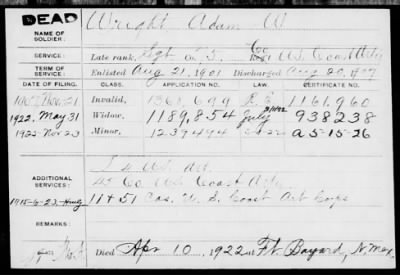 DEAD
NAME OF SOLDIER: Wright Adam W
SERVICE: Late rank, Sgt Co. Co Reg't U.S. Coast Arty
TERM OF SERVICE: Enlisted Aug 21, 1901 Discharged Aug 20, 1907
DATE OF FILING. CLASS. APPLICATION NO. LAW. CERTIFICATE NO.
Nov 21 Invalid, 1361,699 1161,960
1922, May 31 Widow, 1189,854 July 938238
1922 Nov 23 Minor, 1239494 A 5-15-26
ADDITIONAL SERVICES:
Co U.S. Coast Arty
11 & 51 Cos. U.S. Coast Art Corps
REMARKS:
Died Apr 10, 1922 at Ft. Bayard, N. Mex.